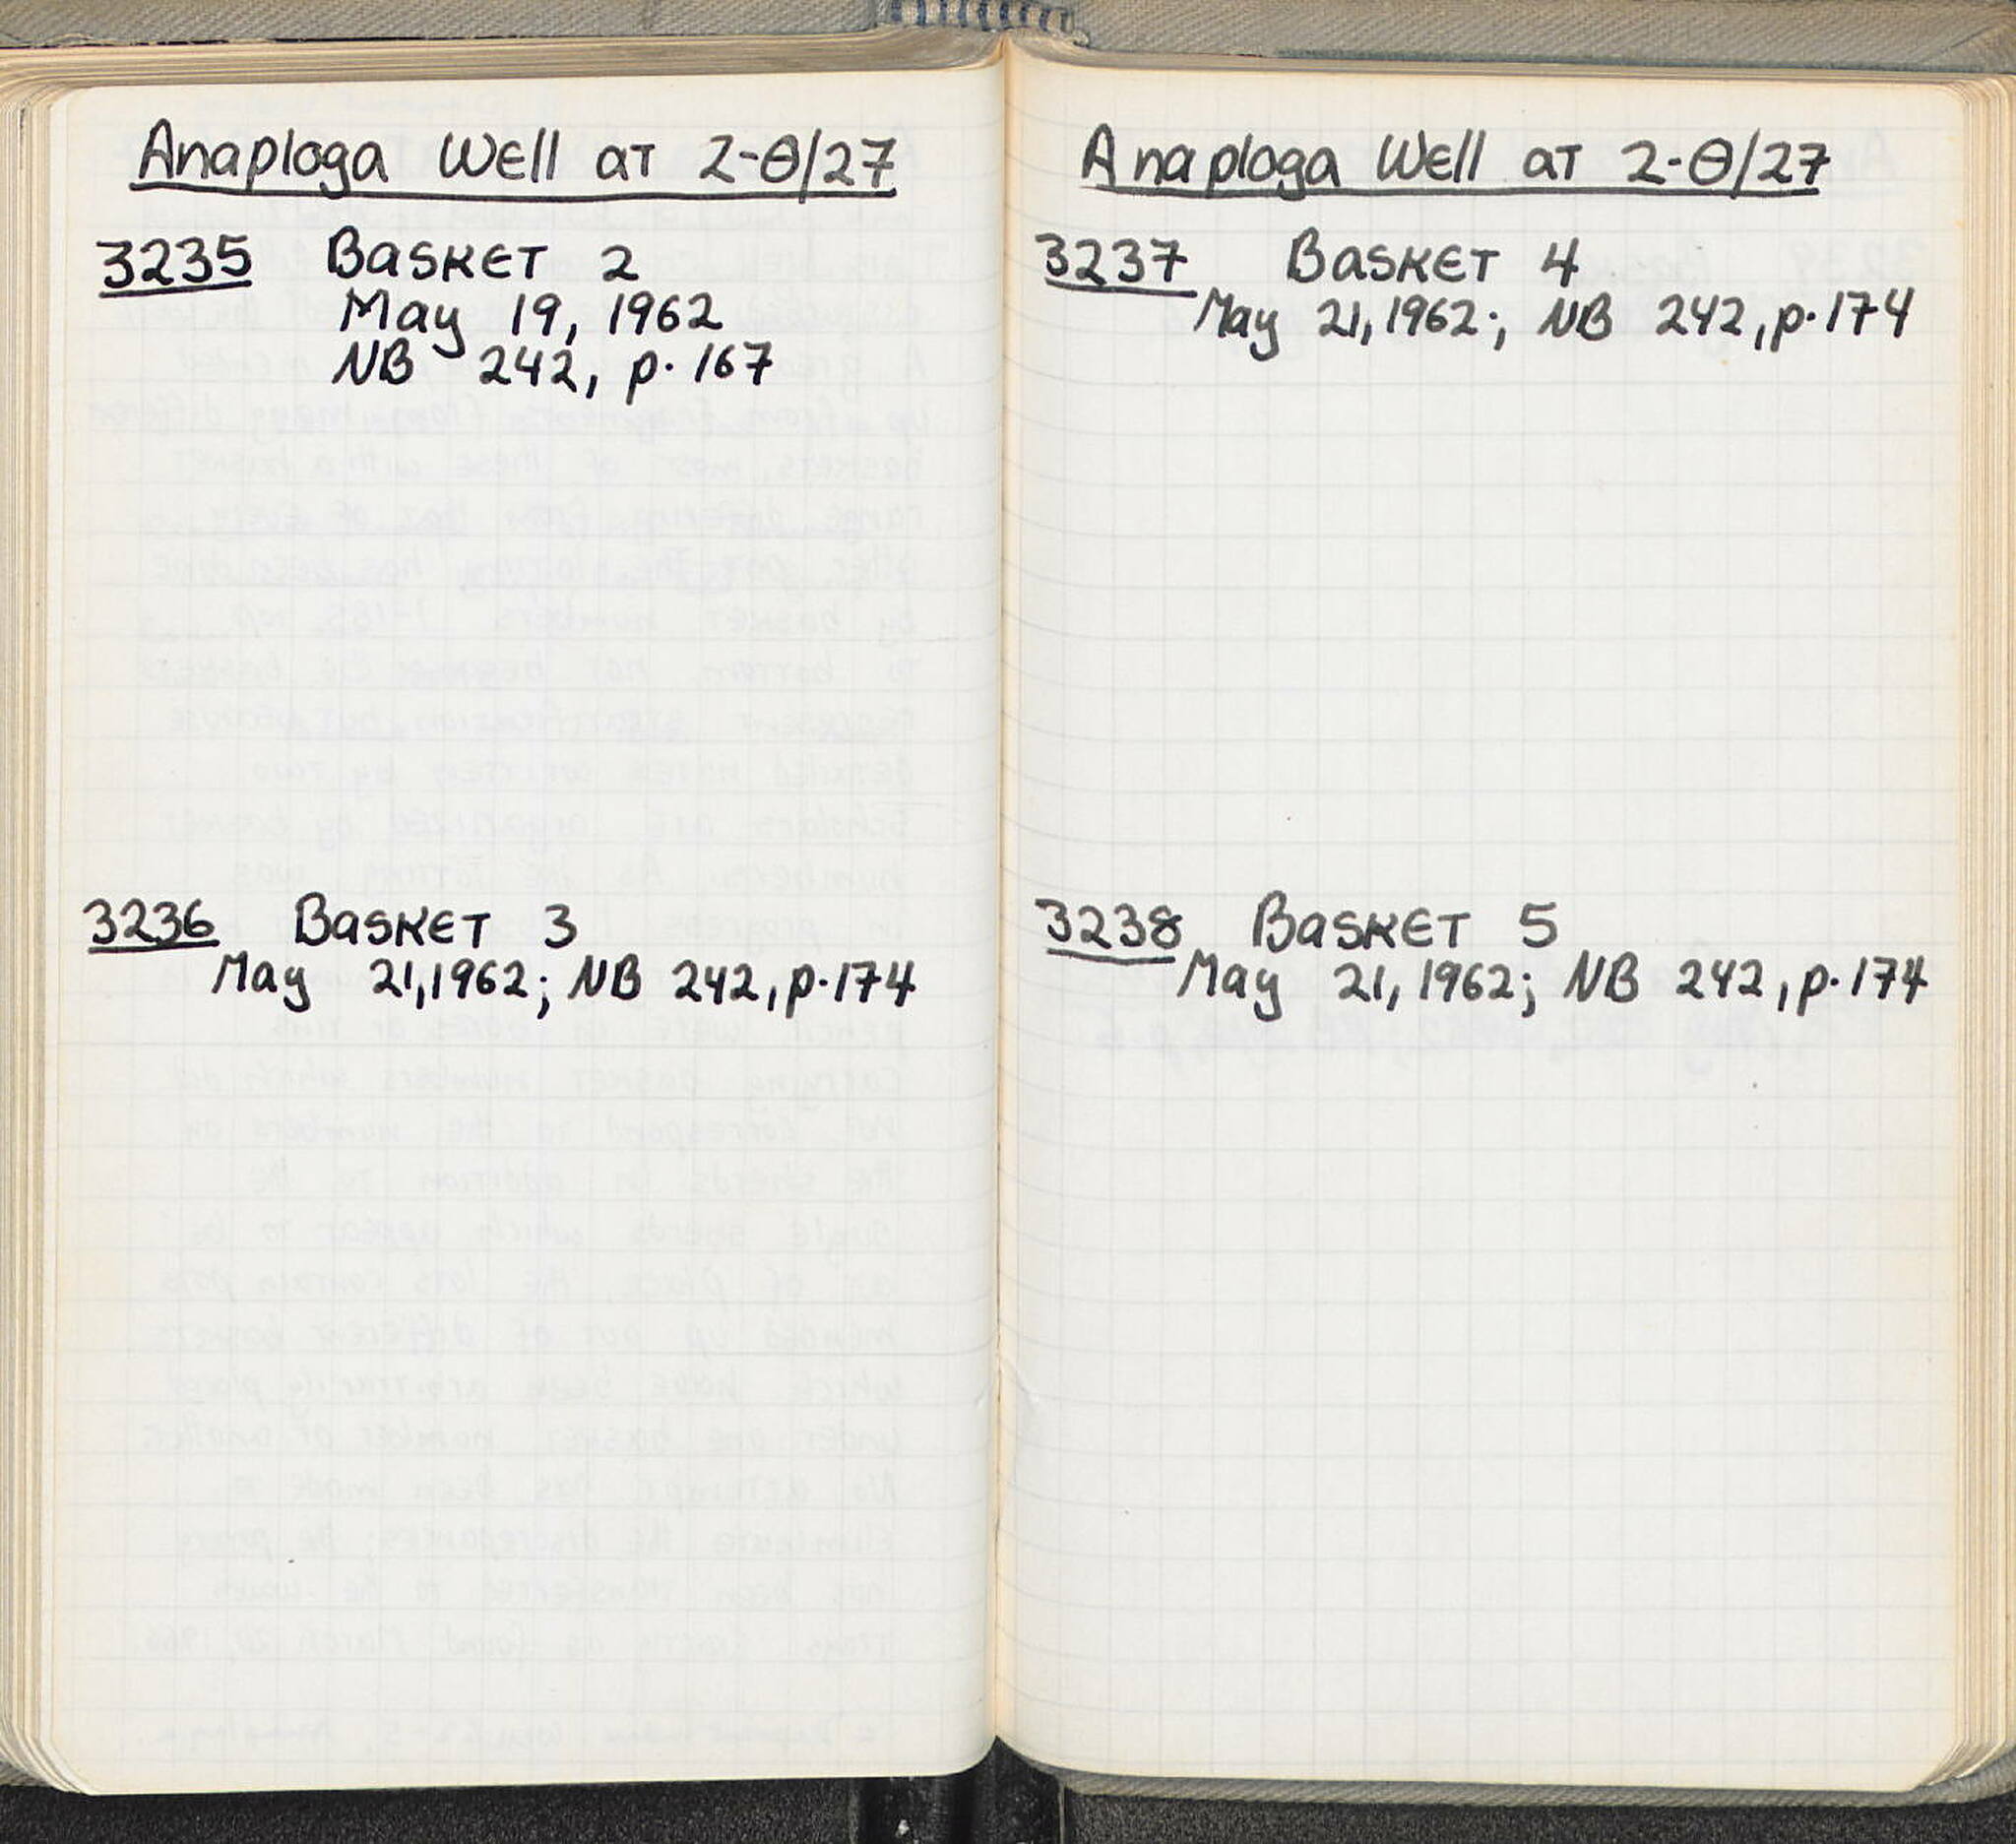 Anaploga Well at 2-Θ/27
3235 Basket 2
May 19, 1962
NB 242, p. 167
3236 Basket 3
May 21, 1962; NB 242, p. 174
Anaploga Well at 2-Θ/27
3237 Basket 4
May 21, 1962; NB 242, p. 174
3238 Basket 5
May 21, 1962; NB 242, p. 174